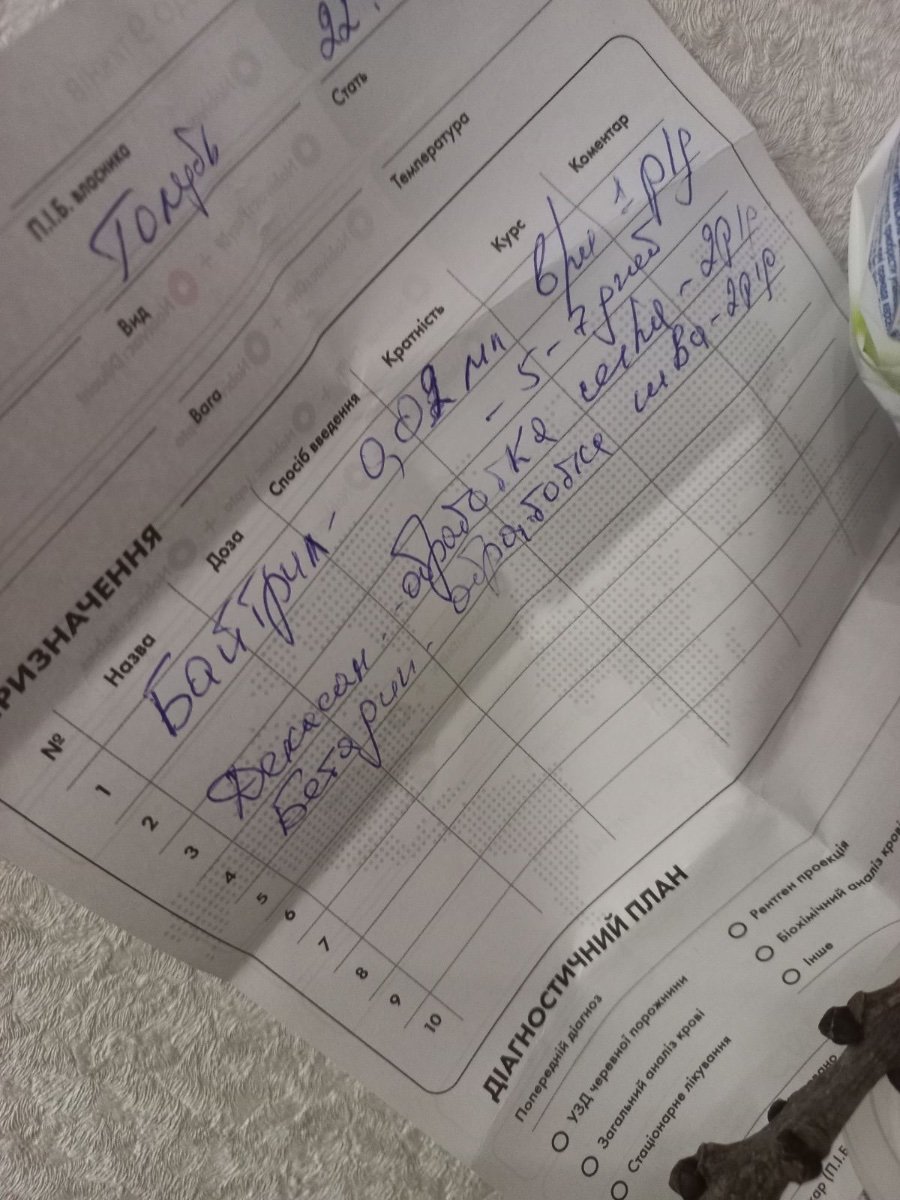 22.
П.І.Б. власника
Стать
Голубь
Вид
Температура
Вага
ПРИЗНАЧЕННЯ
№ Назва Доза Спосіб введення Кратність Курс Коментар
1 Байтрил - 0,02 мл в/м 1 р/д
2 - 5-7 дней
3 Декасан - обработка - 2р/д
4 Бетадин - обработка шва - 2р/д
5
6
7
8
9
10
ДІАГНОСТИЧНИЙ ПЛАН
Попередній діагноз
УЗД черевної порожнини
Загальний аналіз крові
Стаціонарне лікування
Рентген проекція
Біохімічний аналіз крові
Інше